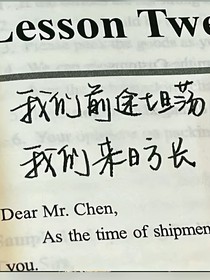 Lesson Twe
我们前途坦荡
我们来日方长
Dear Mr. Chen,
As the time of shipmen
you.